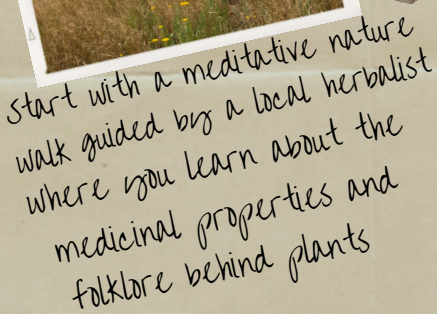 start with a meditative nature
walk guided by a local herbalist
where you learn about the
medicinal properties and
folklore behind plants